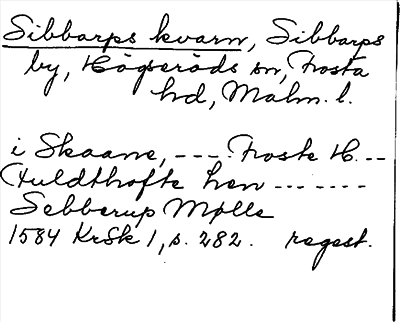 Sibbarps kvarn, Sibbarps
by, Högseröds sn, Frosta
hd, Malm. l.
i Skaane, --- Froste H. --
Huldthofte Len --- ----
Sebberup Mølle
1584 KrSk 1, s. 282. regest.